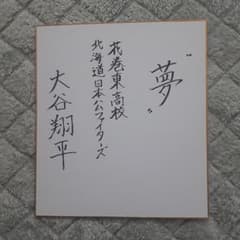 "夢"
花巻東高校
北海道日本ハムファイターズ
大谷翔平